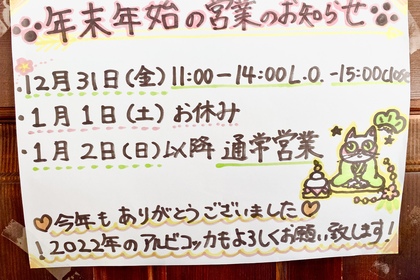 年末年始の営業のお知らせ
・12月31日(金) 11:00-14:00L.O. -15:00close
・1月1日(土) お休み
・1月2日(日)以降 通常営業
♡今年もありがとうございました♡
!2022年のアルビコッカもよろしくお願い致します!